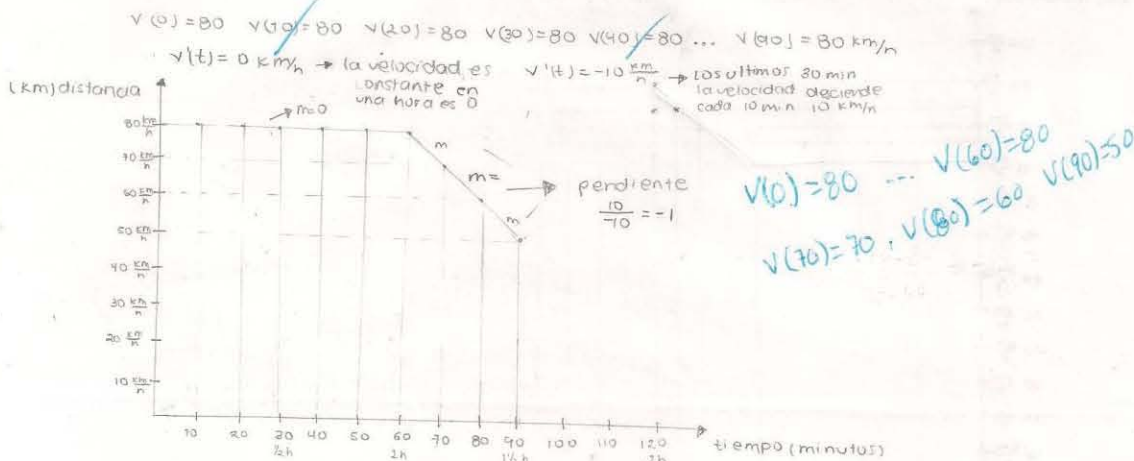 V(0)=80 V(10)=80 V(20)=80 V(30)=80 V(40)=80 ... V(90)=80 km/h
V'(t)=0 km/h → la velocidad es constante en una hora es 0
V'(t)=-10 km/h → Los ultimos 30 min la velocidad deciende cada 10 min 10 km/h
(km) distancia
m=0
80 km/h
70 km/h
60 km/h
50 km/h
40 km/h
30 km/h
20 km/h
10 km/h
m
m=
m
pendiente
10/-10 = -1
V(0)=80 ... V(60)=80
V(70)=70, V(80)=60 V(90)=50
10 20 30 40 50 60 70 80 90 100 110 120
tiempo (minutos)
½h 1½h